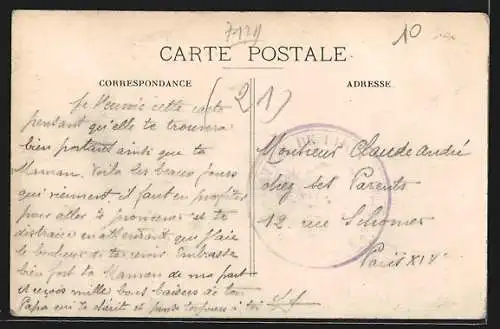 7129
10
CARTE POSTALE
CORRESPONDANCE
ADRESSE
(21)
Je t'envoie cette carte
pensant qu'elle te trouvera
bien portant ainsi que ta
Maman. Voila les beaux jours
qui viennent il faut en profiter
pour aller te promener et te
distraire en attendant que j'aie
le bonheur de te revoir. Embrasse
bien fort ta Maman de ma part
et reçois mille bons baisers de ton
Papa qui te désire et pense toujours à toi
Monsieur Claude André
chez ses Parents
12 rue Schomer
Paris XIV